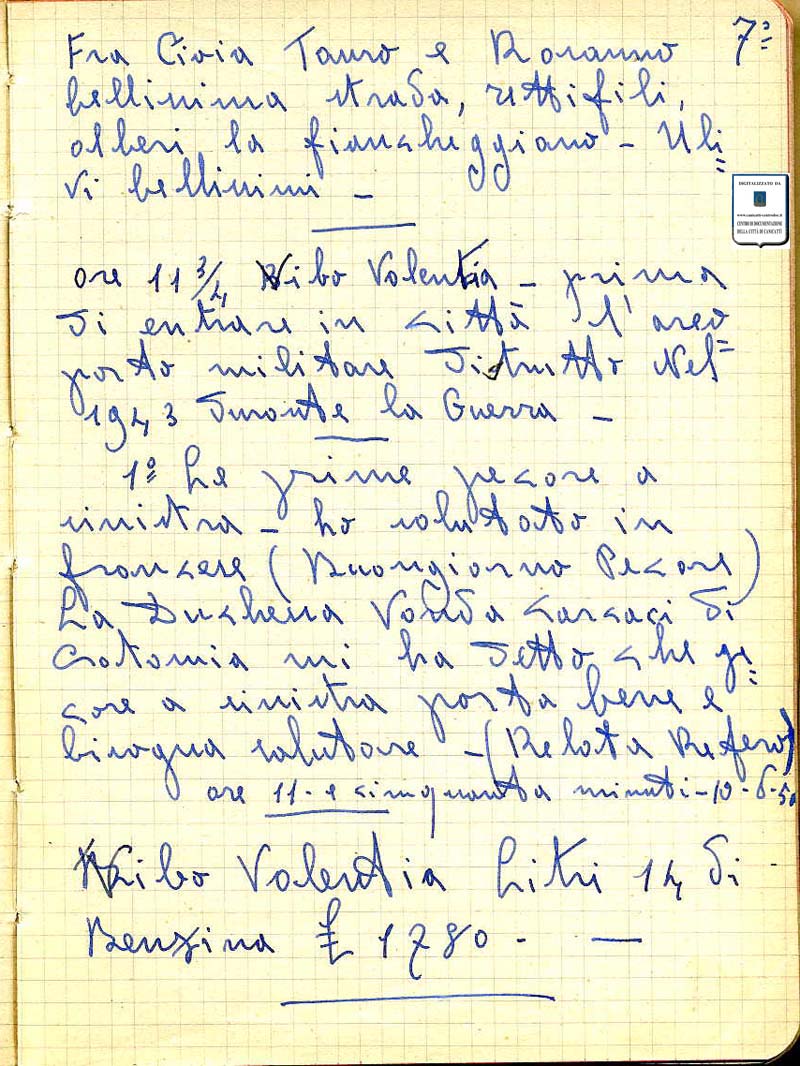 7º
Fra Gioia Tauro e Rosarno
bellissima strada, rettifili,
alberi la fiancheggiano - Uli=
vi bellissimi -
DIGITALIZZATO DA
www.canicatti-centrodoc.it
CENTRO DI DOCUMENTAZIONE
DELLA CITTÀ DI CANICATTÌ
ore 11 3/4 Vibo Valentia - prima
di entrare in città l'areo=
porto militare distrutto Nel
1943 durante la Guerra -
1º Le prime pecore a
sinistra - ho salutato in
francese (Buongiorno Pecore)
La Duchessa Vanda Carcaci di
mi ha detto che pe=
core a sinistra porta bene e
bisogna salutare - (Relata Refero)
ore 11 - e cinquanta minuti - 10-6-50
Vibo Valentia Litri 14 di
Benzina £ 1780 - —